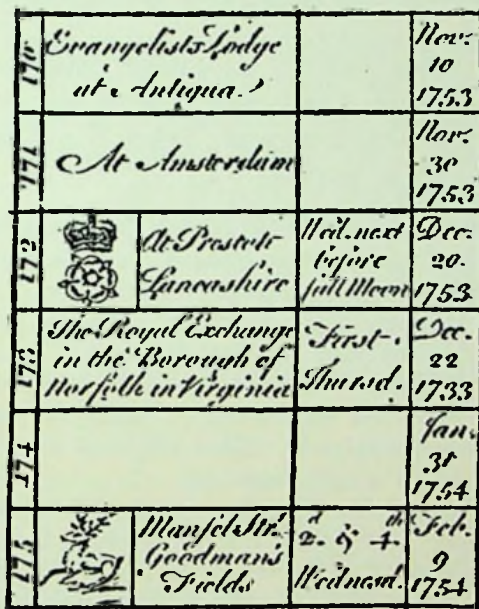 170
Evangelists Lodge
at Antigua.
Nov.
10
1753
171
At Amsterdam
Nov.
30
1753
172
At Prescott
Lancashire
Wed. next
before
full Moon
Dec.
20
1753
173
The Royal Exchange
in the Borough of
Norfolk in Virginia
First
Thursd.
Dec.
22
1733
174
Jan.
31
1754
175
Mansel Str.
Goodman's
Fields
2d & 4th
Wednesd.
Feb.
9
1754